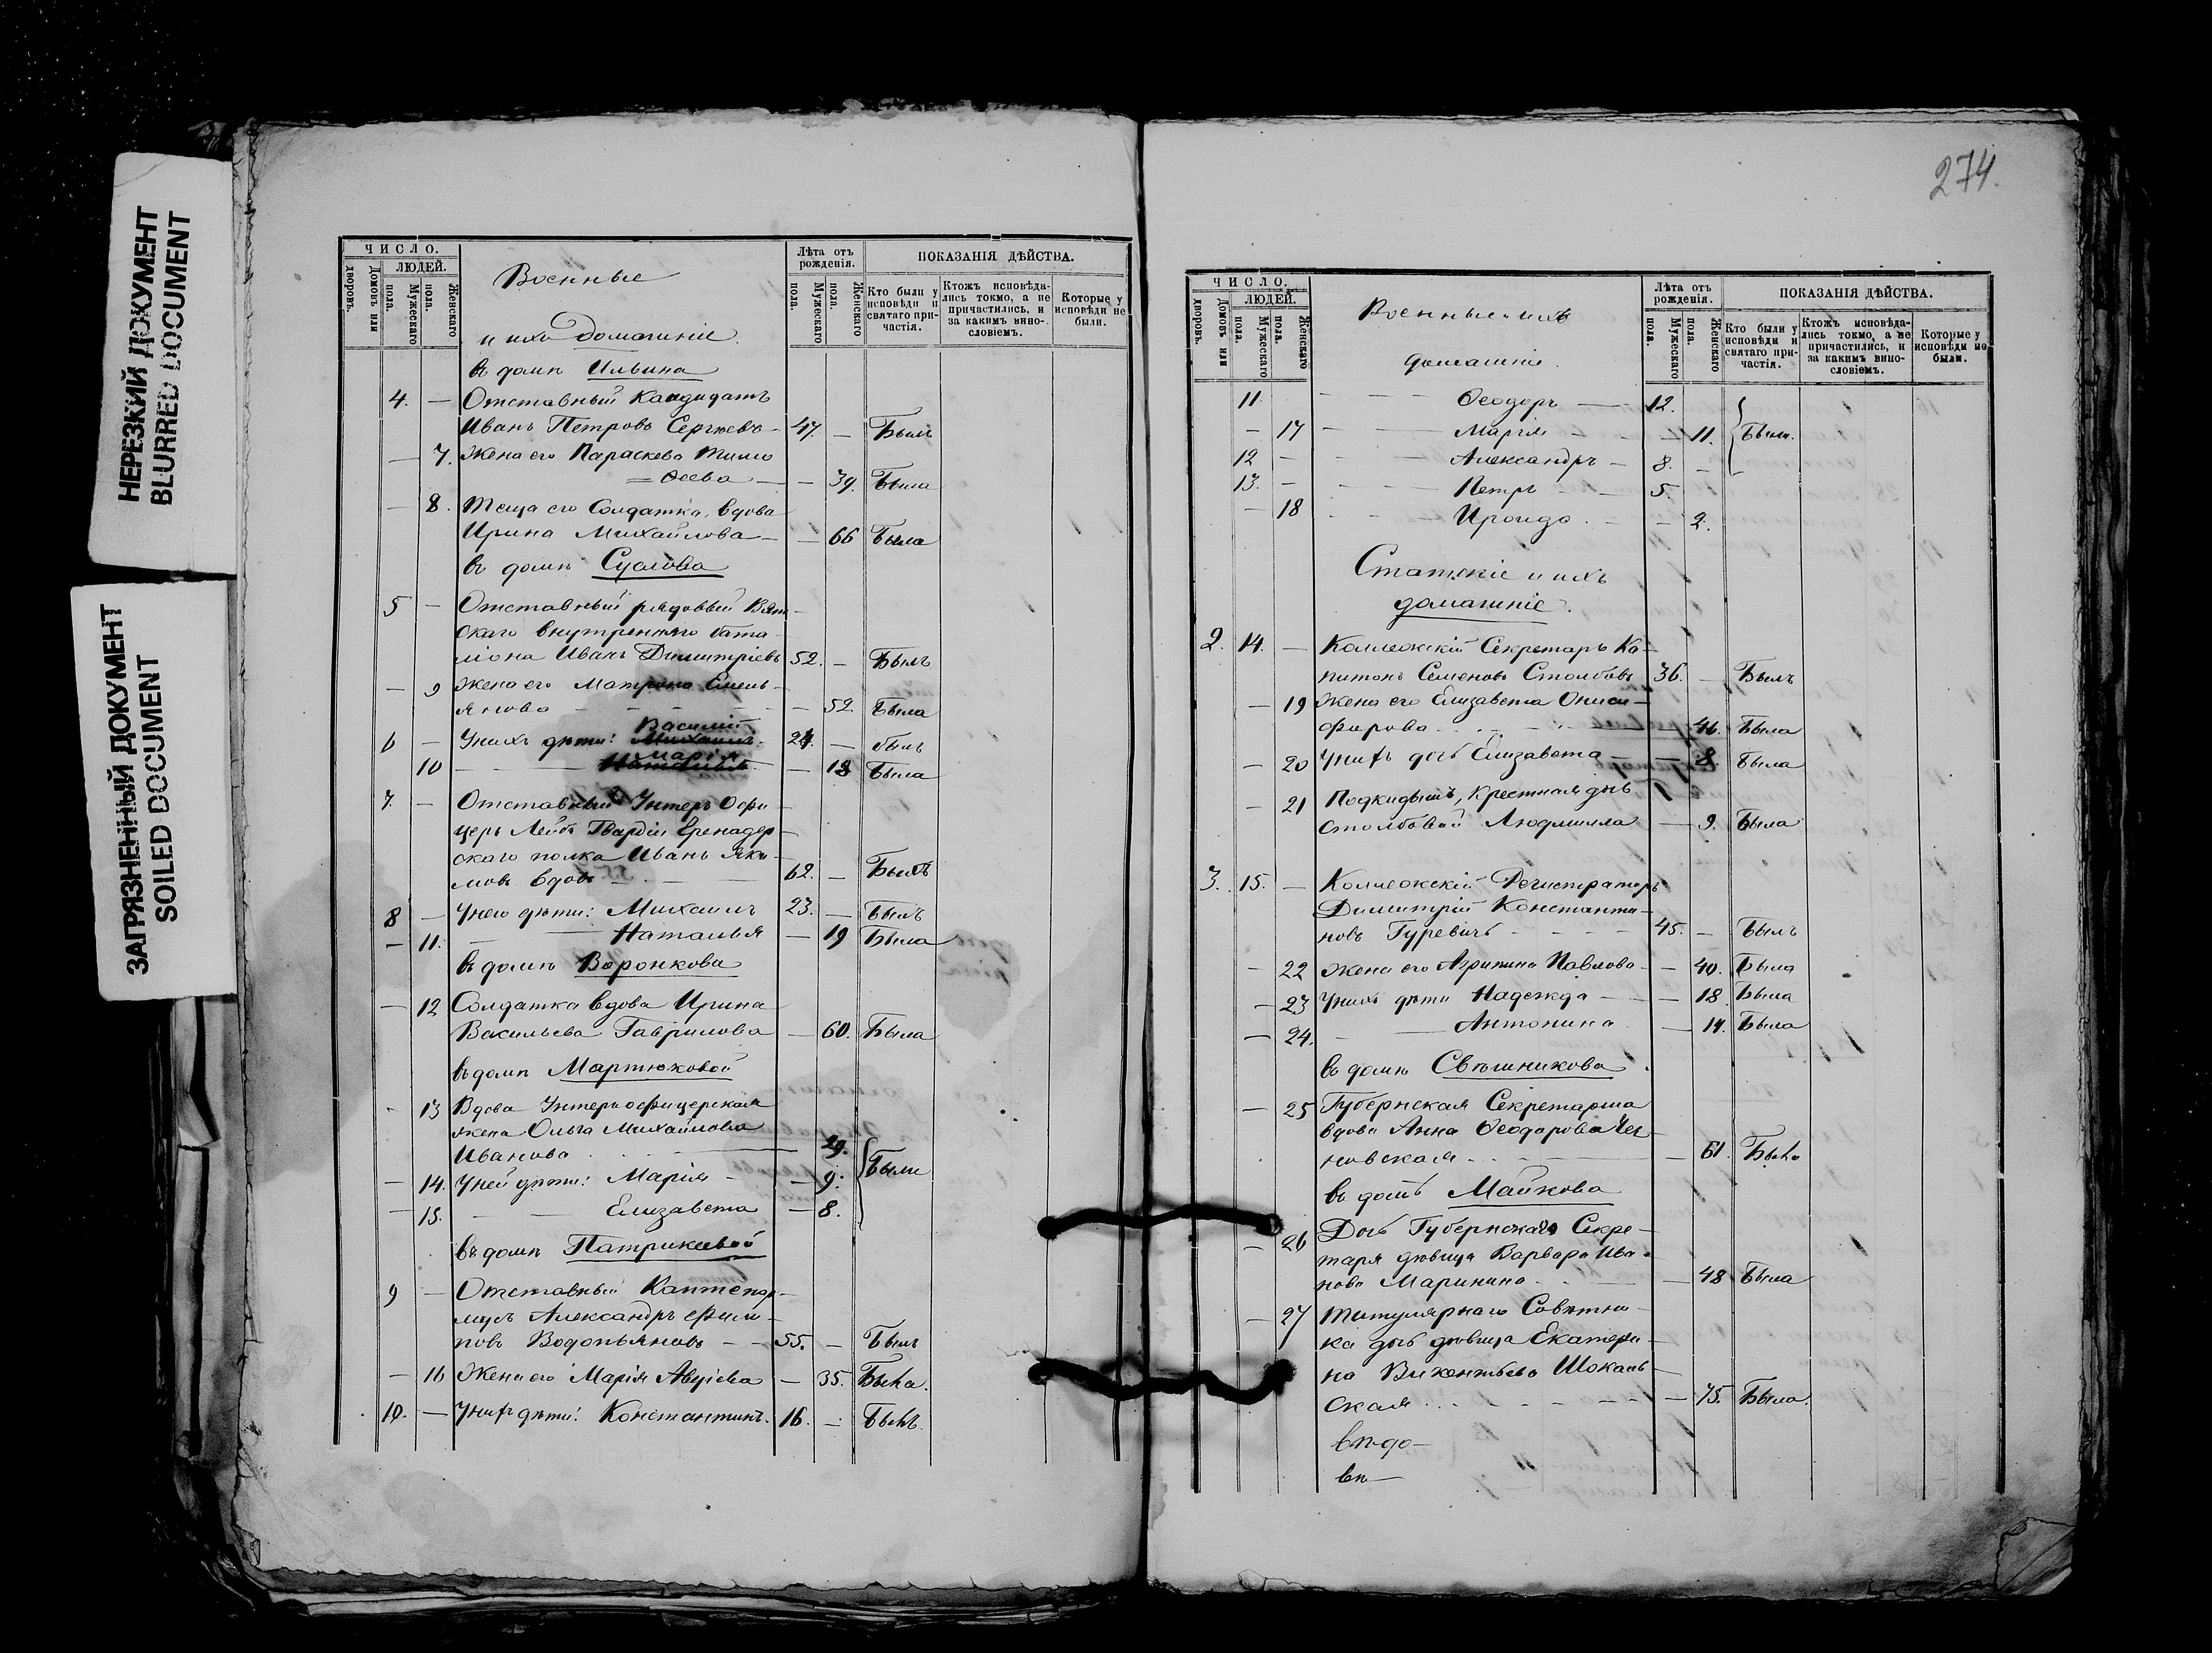 НЕРЕЗКИЙ ДОКУМЕНТ
BLURRED DOCUMENT
ЗАГРЯЗНЕННЫЙ ДОКУМЕНТ
SOILED DOCUMENT
ЧИСЛО.
ЛЮДЕЙ.
Домовъ или дворовъ.
Мужескаго пола.
Женскаго пола.
Военные
и ихъ домашніе.
Лѣта отъ рожденія.
Мужескаго пола.
Женскаго пола.
ПОКАЗАНІЯ ДѢЙСТВА.
Кто были у исповѣди и святаго причастія.
Ктожъ исповѣдались токмо, а не причастились, и за какимъ винословіемъ.
Которые у исповѣди не были.
въ домѣ Ильина
4. — Отставный Кандидатъ
Иванъ Петровъ Сергѣевъ — 47. — Былъ
— 7. Жена его Параскева Тимо
=ѳеева — — 39. Была
— 8. Теща его Солдатка, вдова
Ирина Михайлова — — 66 Была
въ домѣ Суслова
5 — Отставный рядовый Вят-
скаго внутренняго бата-
ліона Иванъ Димитріевъ 52. — Былъ
— 9 Жена его Матрона Емель-
янова — — 52 Была
6 — У нихъ дѣти: Василій 24. — былъ
10 — Марія — 18 Была
7. — Отставный Унтеръ Офи-
церъ Лейбъ Гвардіи Гренадер-
скаго полка Иванъ Яки-
мовъ вдовъ — 62. — Былъ
8 — У него дѣти: Михаилъ 23. — Былъ
— 11. — Наталья — 19 Была
въ домѣ Воронкова
— 12 Солдатка вдова Ирина
Васильева Гаврилова — 60. Была
въ домѣ Мартюховой
- 13 Вдова Унтеръ офицерская
жена Ольга Михайлова
Иванова 29.
— 14. У ней дѣти: Марія — — 9. Были
— 15. — Елизавета — 8.
въ домѣ Патрикеевой
9 — Отставный Каптенар-
мусъ Александръ Филип-
повъ Водопьяновъ — 55. — Былъ
— 16 Жена его Марія — 35. Была.
10. — У нихъ дѣти: Константинъ. 16. — Былъ.
274.
ЧИСЛО.
ЛЮДЕЙ.
Домовъ или дворовъ.
Мужескаго пола.
Женскаго пола.
Военные и ихъ
домашніе.
Лѣта отъ рожденія.
Мужескаго пола.
Женскаго пола.
ПОКАЗАНІЯ ДѢЙСТВА.
Кто были у исповѣди и святаго причастія.
Ктожъ исповѣдались токмо, а не причастились, и за какимъ винословіемъ.
Которые у исповѣди не были.
11. — Ѳеодоръ — 12.
— 17 — Марія — 11. Были.
12 — Александръ — 8. —
13. — Петръ — 5.
— 18 — Ираида — 2.
Статскіе и ихъ
домашніе.
2. 14. — Коллежскій Секретарь Ка-
питонъ Семеновъ Столбовъ 36. — Былъ
— 19 Жена его Елизавета Ониси-
форова 46. Была
— 20 У нихъ дочь Елизавета — — 8. Была
— 21 Подкидышъ, крестная дочь
Столбовой Людмилла — 9. Была
3. 15. — Коллежскій Регистраторъ
Димитрій Константи-
новъ Гуревичъ 45. — Былъ
— 22 Жена его Агрипина Павлова — 40. Была
— 23 У нихъ дѣти Надежда — — 18. Была
— 24. — Антонина — 14. Была
въ домѣ Свѣшникова
— 25 Губернская Секретарша
вдова Анна Ѳеодорова
новская — 61. Была
въ домѣ Майкова
— 26 Дочь Губернскаго Секре-
таря дѣвица Варвара Ива-
нова Маринина — 48 Была
— 27 Титулярнаго Совѣтни-
ка дочь дѣвица Екатери-
на Викентьева Шокаль-
ская — 75. Была.
въ до—
въ—